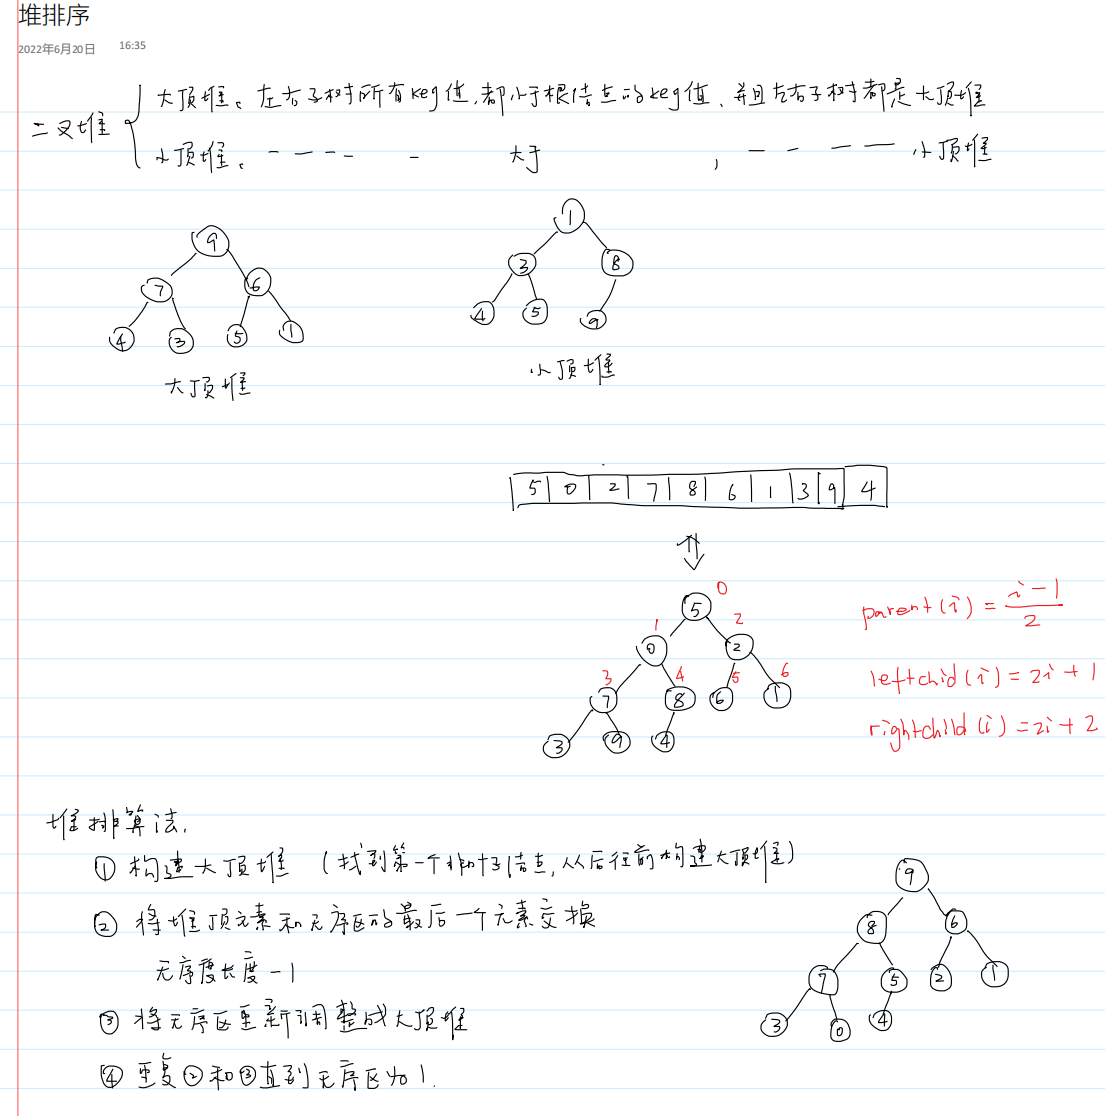 堆排序
2022年6月20日 16:35
二叉堆
大顶堆、左右子树所有key值,都小于根结点的key值、并且左右子树都是大顶堆
小顶堆、- - - - - 大于 , - - - - 小顶堆
9
7 6
4 3 5 1
大顶堆
1
3 8
4 5 9
小顶堆
5 0 2 7 8 6 1 3 9 4
5 0
1 2
0 2
3 4 5 6
7 8 6 1
3 9 4
parent(i) = i-1/2
leftchid(i) = 2i+1
rightchild(i) = 2i+2
堆排算法.
① 构建大顶堆 (找到第一个非叶子结点,从后往前构建大顶堆)
② 将堆顶元素和无序区的最后一个元素交换
无序度长度-1
③ 将无序区重新调整成大顶堆
④ 重复②和③直到无序区为1.
9
8 6
7 5 2 1
3 0 4